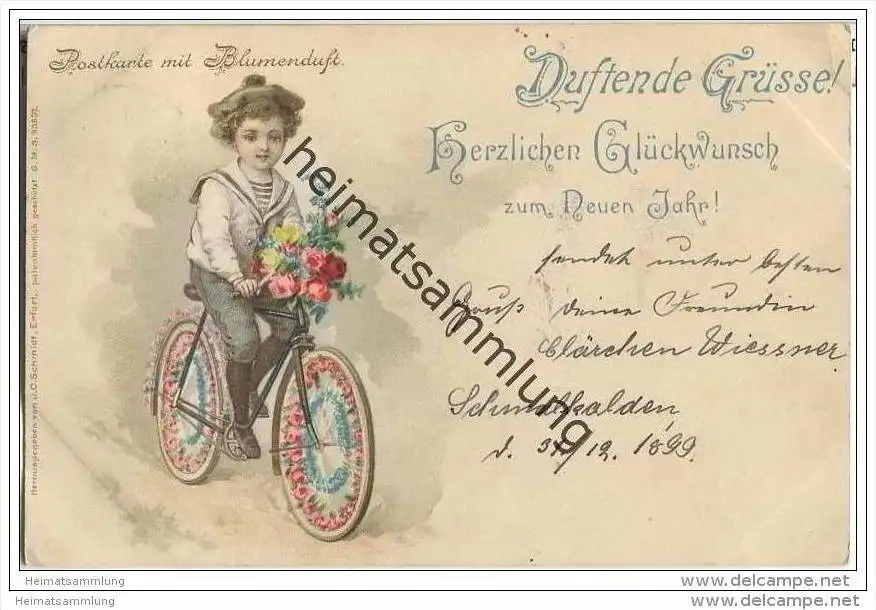 Postkarte mit Blumenduft.
Duftende Grüsse!
Herzlichen Glückwunsch
zum Neuen Jahr!
sendet unter besten
Gruß deine Freundin
Clärchen Wiessner
Schmalkalden,
d. 31/12. 1899.
Herausgegeben von J.C. Schmidt, Erfurt, patentamtlich geschützt G.M.S. 93657.
heimatsammlung
Heimatsammlung
www.delcampe.net
Heimatsammlung
www.delcampe.net